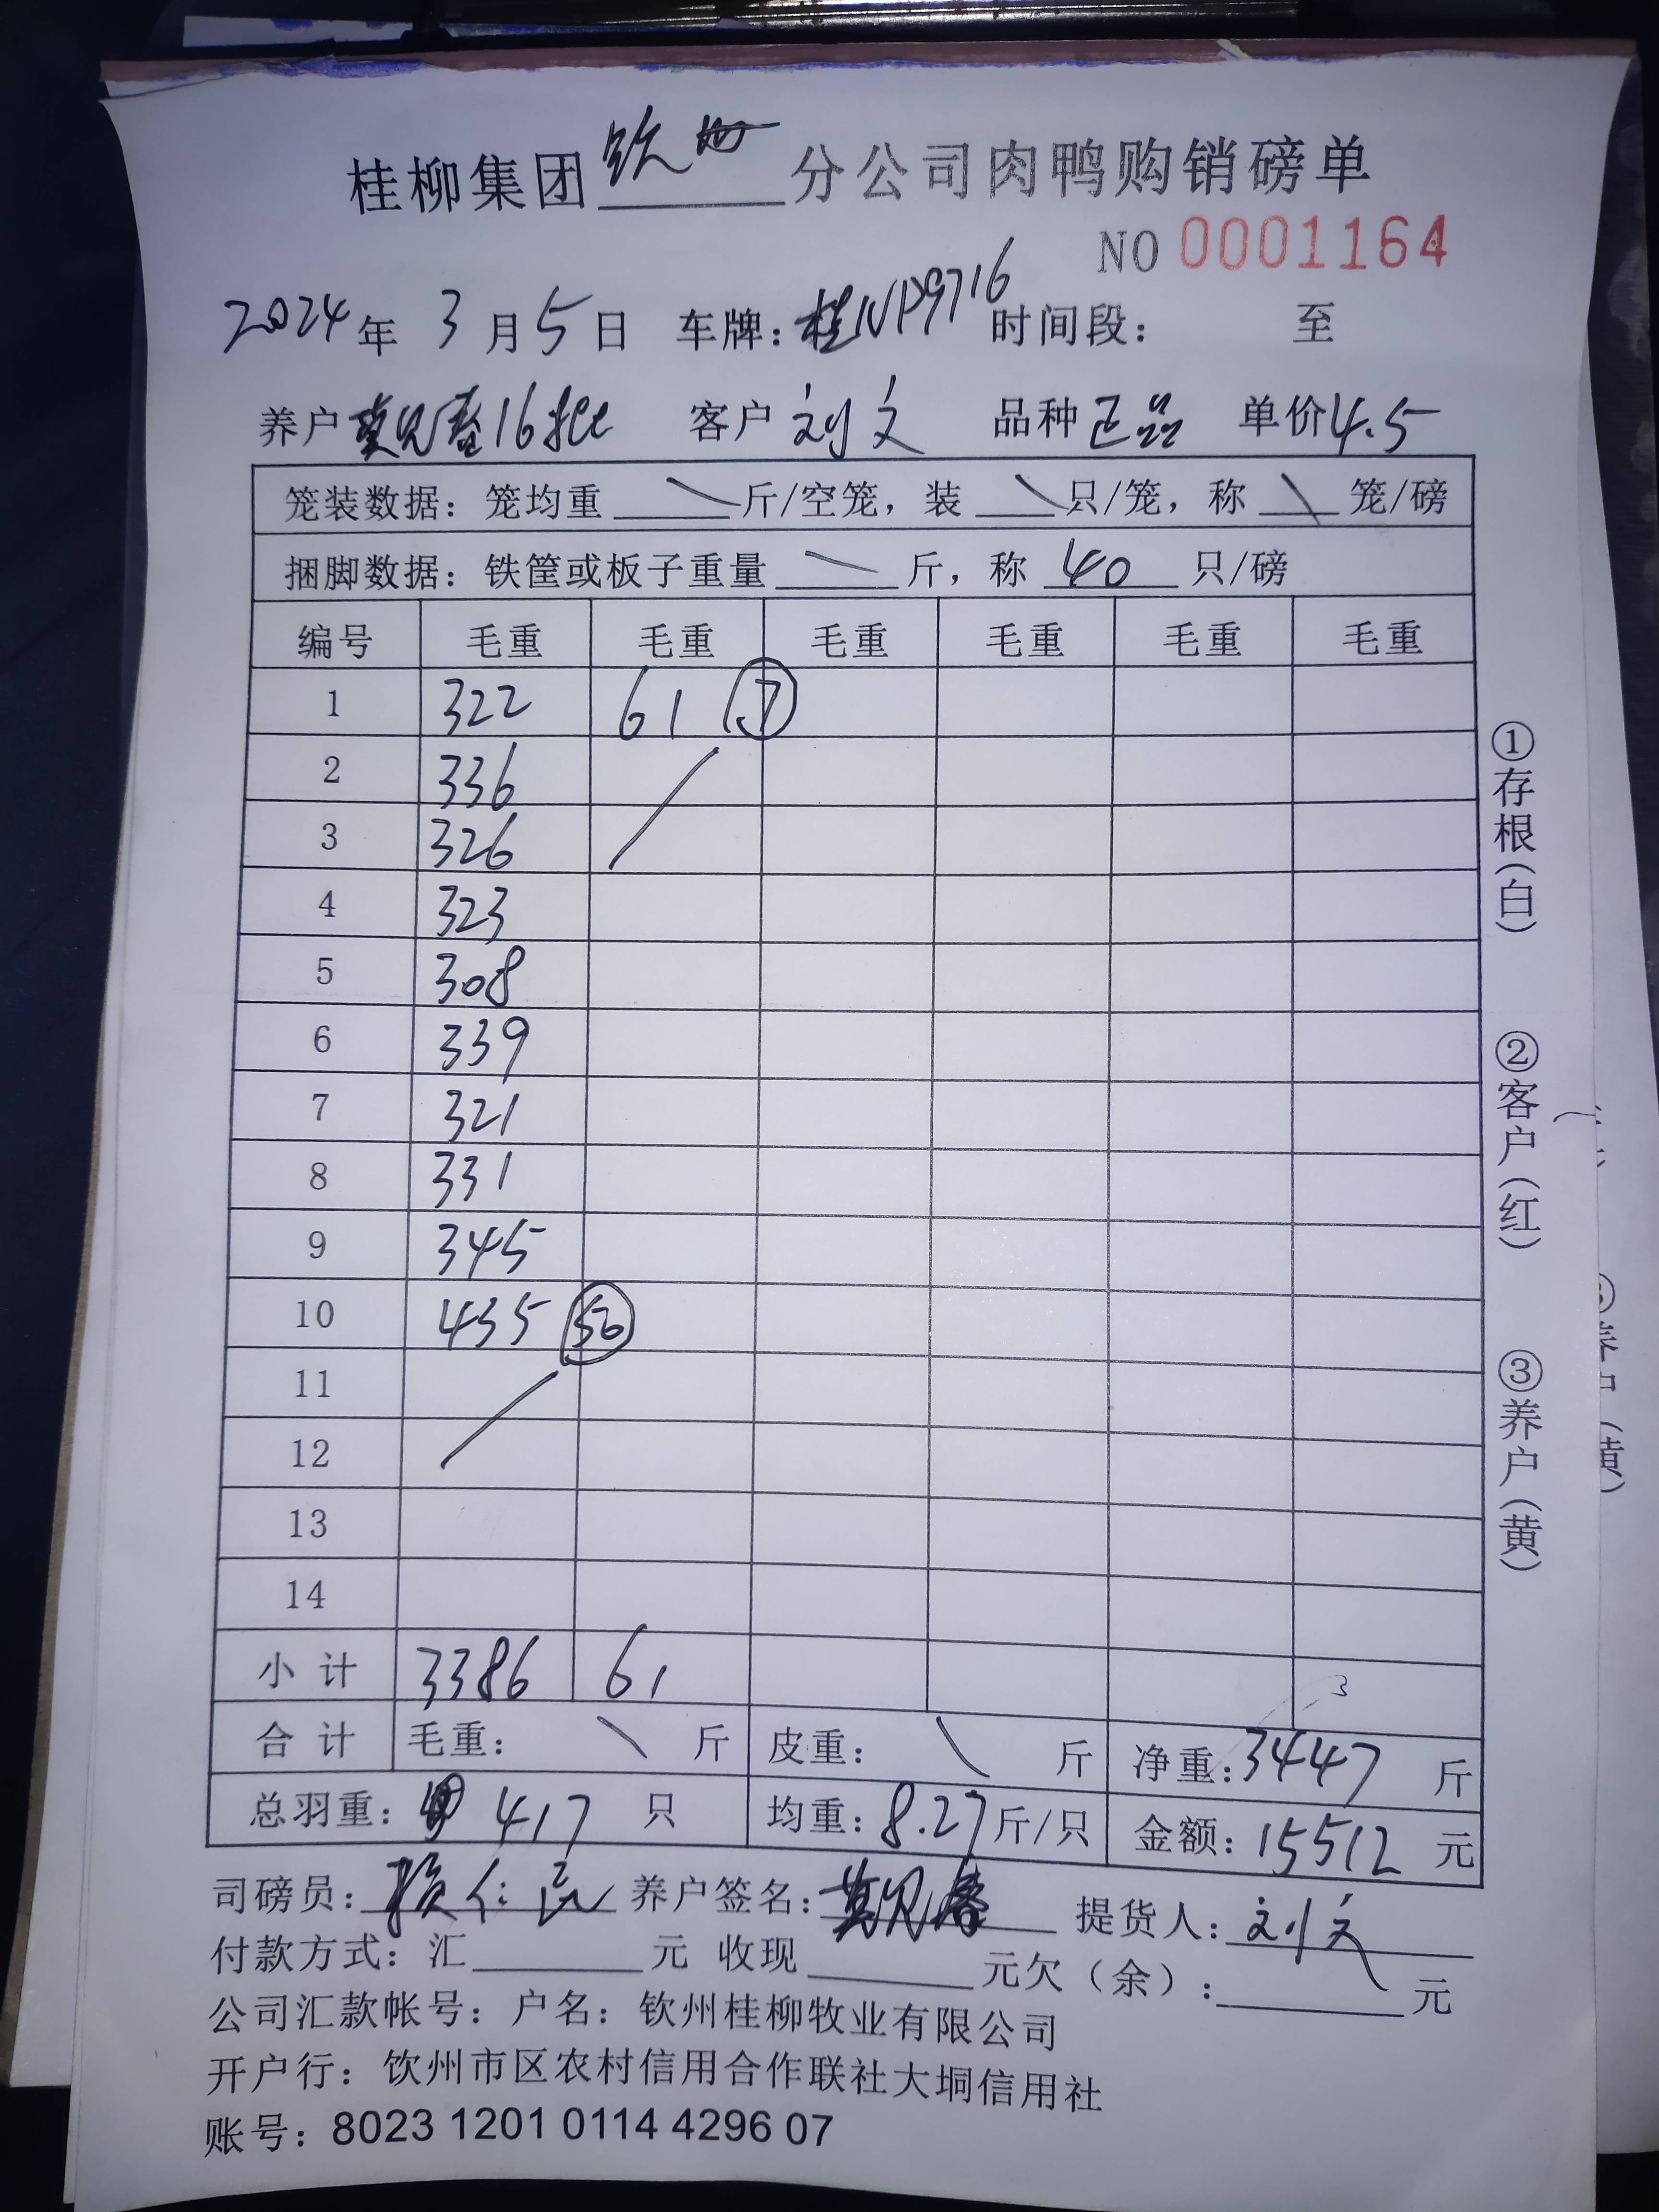 桂柳集团钦州分公司肉鸭购销磅单
NO 0001164
2024年 3月5日 车牌:桂NP9716 时间段: 至
养户 莫見春16批 客户 刘文 品种 正品 单价4.5
笼装数据: 笼均重 \ 斤/空笼, 装 \ 只/笼, 称 \ 笼/磅
捆脚数据: 铁筐或板子重量 \ 斤, 称 40 只/磅
编号 毛重 毛重 毛重 毛重 毛重 毛重
1 322 61 (7)
2 336
3 326
4 323
5 308
6 339
7 321
8 331
9 345
10 435 (56)
11
12
13
14
小计 3386 61
合计 毛重: \ 斤 皮重: \ 斤 净重:3447 斤
总羽重: 417 只 均重:8.27斤/只 金额:15512 元
司磅员: 养户签名:莫見春 提货人:刘文
付款方式: 汇 元 收现 元欠(余): 元
公司汇款帐号: 户名: 钦州桂柳牧业有限公司
开户行: 钦州市区农村信用合作联社大垌信用社
账号: 8023 1201 0114 4296 07
①存根(白)
②客户(红)
③养户(黄)